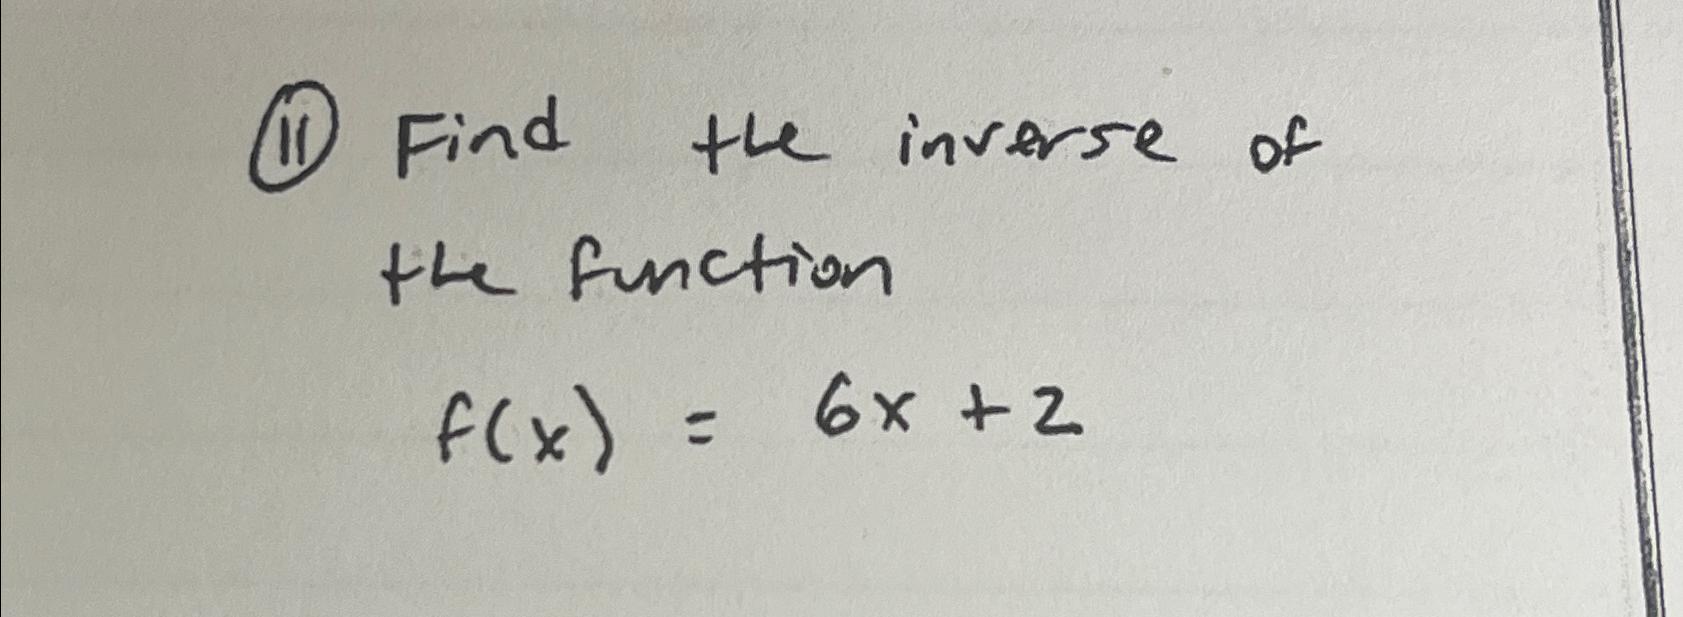 11 Find the inverse of
the function
f(x) = 6x + 2